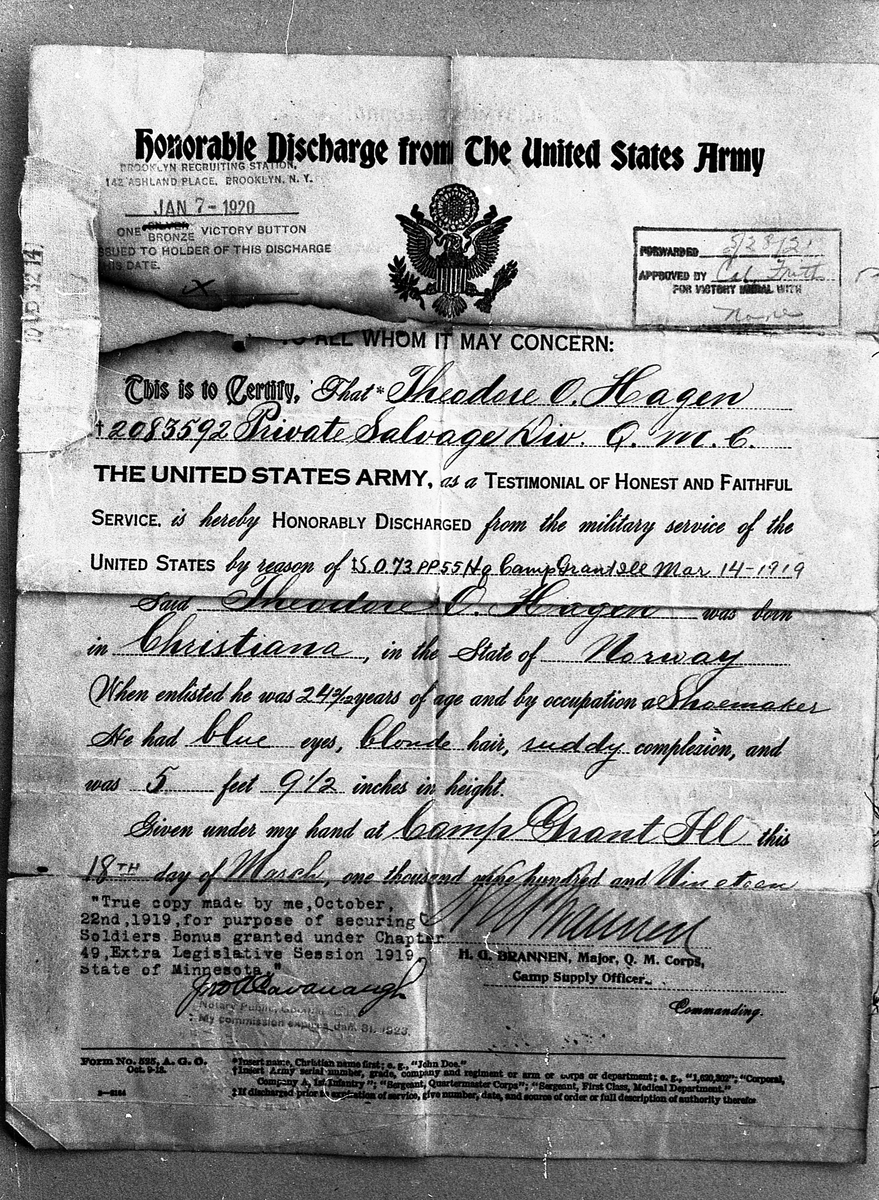 Honorable Discharge from The United States Army
BROOKLYN RECRUITING STATION,
142 ASHLAND PLACE, BROOKLYN, N. Y.
JAN 7- 1920
ONE SILVER
BRONZE VICTORY BUTTON
ISSUED TO HOLDER OF THIS DISCHARGE
THIS DATE.
X
FORWARDED 5/23/21
APPROVED BY Col. Frith
FOR VICTORY MEDAL WITH
None
TO ALL WHOM IT MAY CONCERN:
This is to Certify, That* Theodore O. Hagen
†2083592 Private Salvage Div. Q. M. C.
THE UNITED STATES ARMY, as a TESTIMONIAL OF HONEST AND FAITHFUL
SERVICE, is hereby HONORABLY DISCHARGED from the military service of the
UNITED STATES by reason of ‡S.O. 73 PP 55 Hq Camp Grant Ill Mar 14-1919
Said Theodore O. Hagen was born
in Christiana, in the State of Norway
When enlisted he was 24 3/12 years of age and by occupation a Shoemaker
He had blue eyes, blonde hair, ruddy complexion, and
was 5 feet 9 1/2 inches in height.
Given under my hand at Camp Grant Ill this
18TH day of March, one thousand nine hundred and Nineteen
"True copy made by me,October,
22nd,1919,for purpose of securing
Soldiers Bonus granted under Chapter
49,Extra Legislative Session 1919,
State of Minnesota."
Cavanaugh
Notary Public,
My commission expires Jan. 31, 1923.
H. G. BRANNEN, Major, Q. M. Corps,
Camp Supply Officer.
Commanding.
Form No. 525, A. G. O.
Oct. 9-18.
*Insert name, Christian name first; e. g., "John Doe."
†Insert Army serial number, grade, company and regiment or arm or corps or department; e. g., "1,620,302"; "Corporal,
Company A, 1st Infantry"; "Sergeant, Quartermaster Corps"; "Sergeant, First Class, Medical Department."
‡If discharged prior to expiration of service, give number, date, and source of order or full description of authority therefor